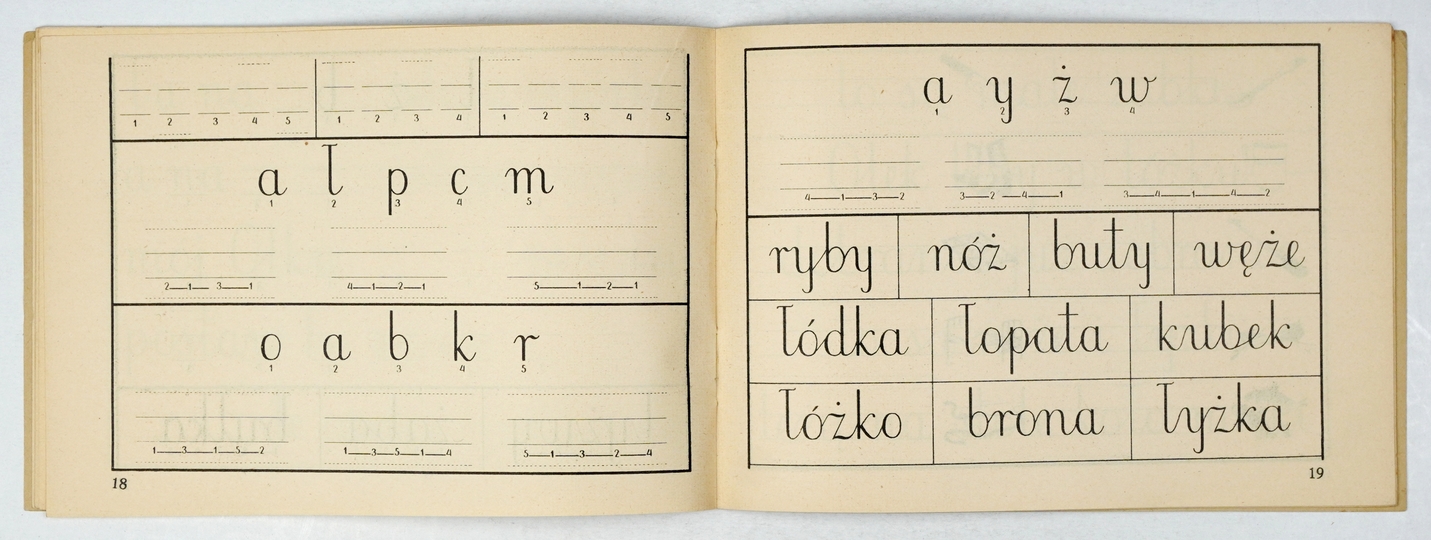 1 2 3 4 5 1 2 3 4 1 2 3 4 5
a ł p c m
1 2 3 4 5
2—1—3—1 4—1—2—1 5—1—2—1
o a b k r
1 2 3 4 5
1—3—1—5—2 1—3—5—1—4 5—1—3—2—4
18
a y ż w
1 2 3 4
4—1—3—2 3—2—4—1 3—4—1—4—2
ryby nóż buty węże
łódka łopata kubek
łóżko brona łyżka
19